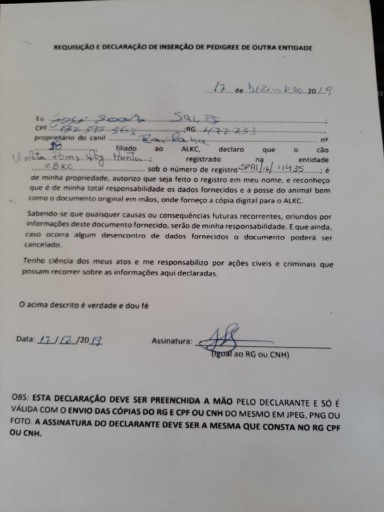 REQUISIÇÃO E DECLARAÇÃO DE INSERÇÃO DE PEDIGREE DE OUTRA ENTIDADE
17 de Dezembro 2019
Eu
CPF :RG 472.253
proprietário do canil nº
18 filiado ao ALKC, declaro que o cão
registrado na entidade
CBKC sob o número de registro SPA1/16/11435 ; é
de minha propriedade, autorizo que seja feito o registro em meu nome, e reconheço
que é de minha total responsabilidade os dados fornecidos e a posse do animal bem
como o documento original em mãos, onde forneço a cópia digital para o ALKC.
Sabendo-se que quaisquer causas ou consequências futuras recorrentes, oriundos por
informações deste documento fornecido, serão de minha responsabilidade. E que ainda,
caso ocorra algum desencontro de dados fornecidos o documento poderá ser
cancelado.
Tenho ciência dos meus atos e me responsabilizo por ações cíveis e criminais que
possam recorrer sobre as informações aqui declaradas.
O acima descrito é verdade e dou fé
Data: 17/12/2019 Assinatura:
(Igual ao RG ou CNH)
OBS: ESTA DECLARAÇÃO DEVE SER PREENCHIDA A MÃO PELO DECLARANTE E SÓ É
VÁLIDA COM O ENVIO DAS CÓPIAS DO RG E CPF OU CNH DO MESMO EM JPEG, PNG OU
FOTO. A ASSINATURA DO DECLARANTE DEVE SER A MESMA QUE CONSTA NO RG CPF
OU CNH.